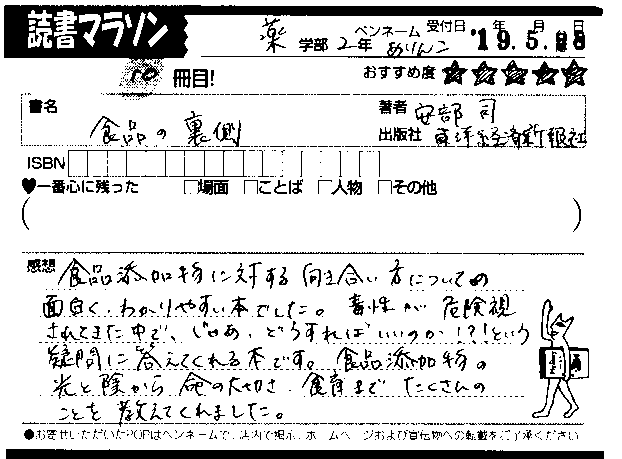 読書マラソン
薬 学部 2年 ペンネーム めりんこ 受付日 '19.5.28
10 冊目!
おすすめ度 ★★★★★
書名 食品の裏側
著者 安部 司
出版社 東洋経済新報社
ISBN
♥一番心に残った □場面 □ことば □人物 □その他
( )
感想 食品添加物に対する向き合い方についての
面白く、わかりやすい本でした。毒性が危険視
されてきた中で、じゃあ、どうすればいいのか!?という
疑問に答えてくれる本です。食品添加物の
光と陰から命の大切さ、食育までたくさんの
ことを教えてくれました。
●お寄せいただいたPOPはペンネームで、店内で掲示、ホームページおよび宣伝物への転載をご了承ください